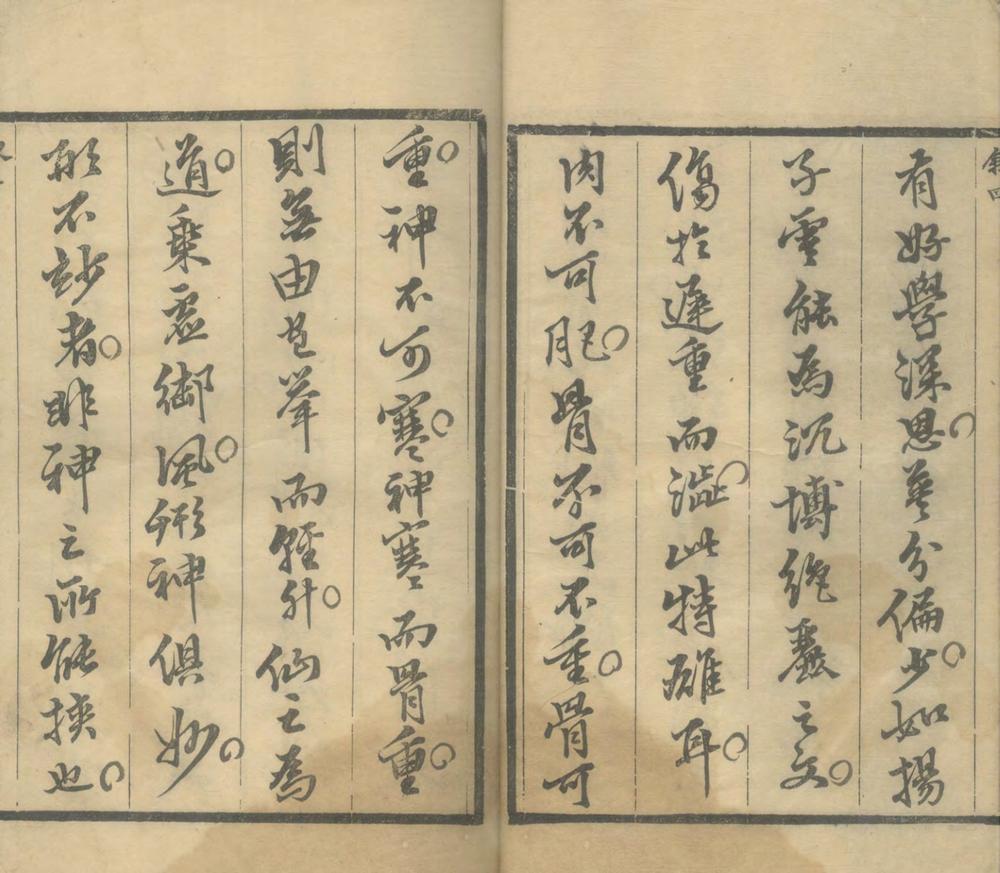 敘四
有好學深思。英分偏少。如揚
子雲能為沉博絕麗之文。
傷於遲重而澁。此特雕耳。
肉不可肥。骨不可不重。骨可
重。神不可寒。神寒而骨重。
則無由色舉而輕升。仙之為
道。乘虛御風。形神俱妙。
形不妙者。非神之所能挾也。